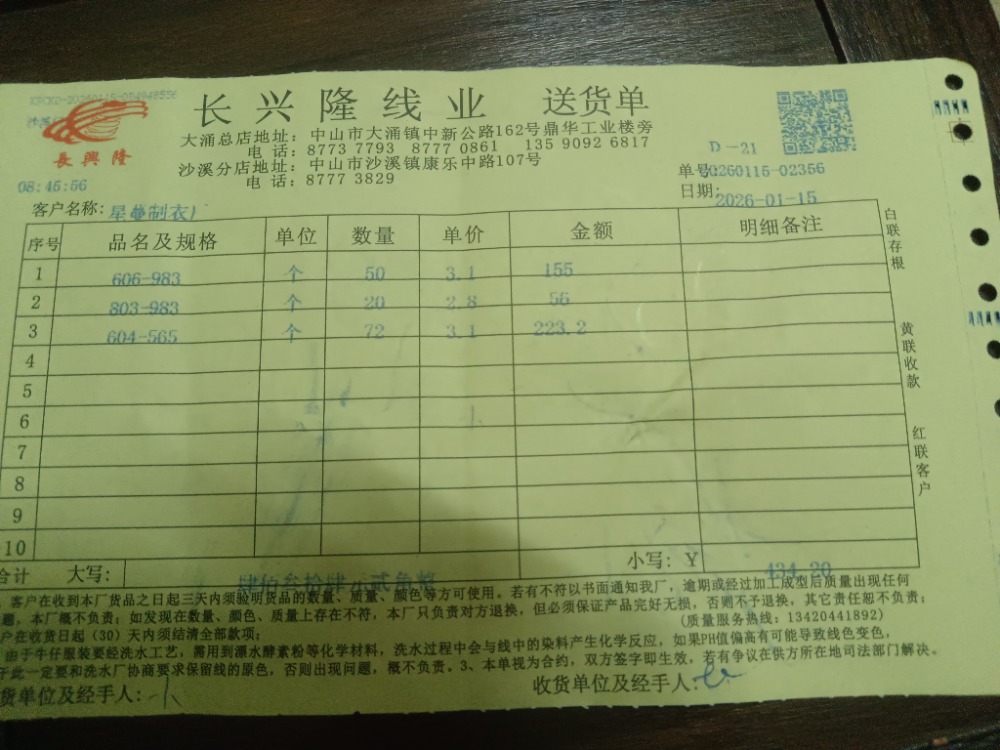 长兴隆线业 送货单
大涌总店地址：中山市大涌镇中新公路162号鼎华工业楼旁
电话：8773 7793 8777 0861 135 9092 6817
沙溪分店地址：中山市沙溪镇康乐中路107号
电话：8777 3829
長興隆
D-21
08:45:56
单号:20260115-02356
日期:2026-01-15
客户名称:星曼制衣厂
序号 品名及规格 单位 数量 单价 金额 明细备注
1 606-983 个 50 3.1 155
2 803-983 个 20 2.8 56
3 604-565 个 72 3.1 223.2
4
5
6
7
8
9
10
合计 大写: 肆佰叁拾肆元贰角整 小写: Y 434.20
白联存根
黄联收款
红联客户
客户在收到本厂货品之日起三天内须验明货品的数量、质量、颜色等方可使用。若有不符以书面通知我厂，逾期或经过加工成型后质量出现任何
题，本厂概不负责；如发现在数量、颜色、质量上存在不符，本厂只负责对方退换，但必须保证产品完好无损，否则不予退换，其它责任恕不负责；
户在收货日起（30）天内须结清全部款项； (质量服务热线：13420441892)
由于牛仔服装要经洗水工艺，需用到漂水酵素粉等化学材料，洗水过程中会与线中的染料产生化学反应，如果PH值偏高有可能导致线色变色，
于此一定要和洗水厂协商要求保留线的原色，否则出现问题，概不负责。3、本单视为合约，双方签字即生效，若有争议在供方所在地司法部门解决。
货单位及经手人: 收货单位及经手人: